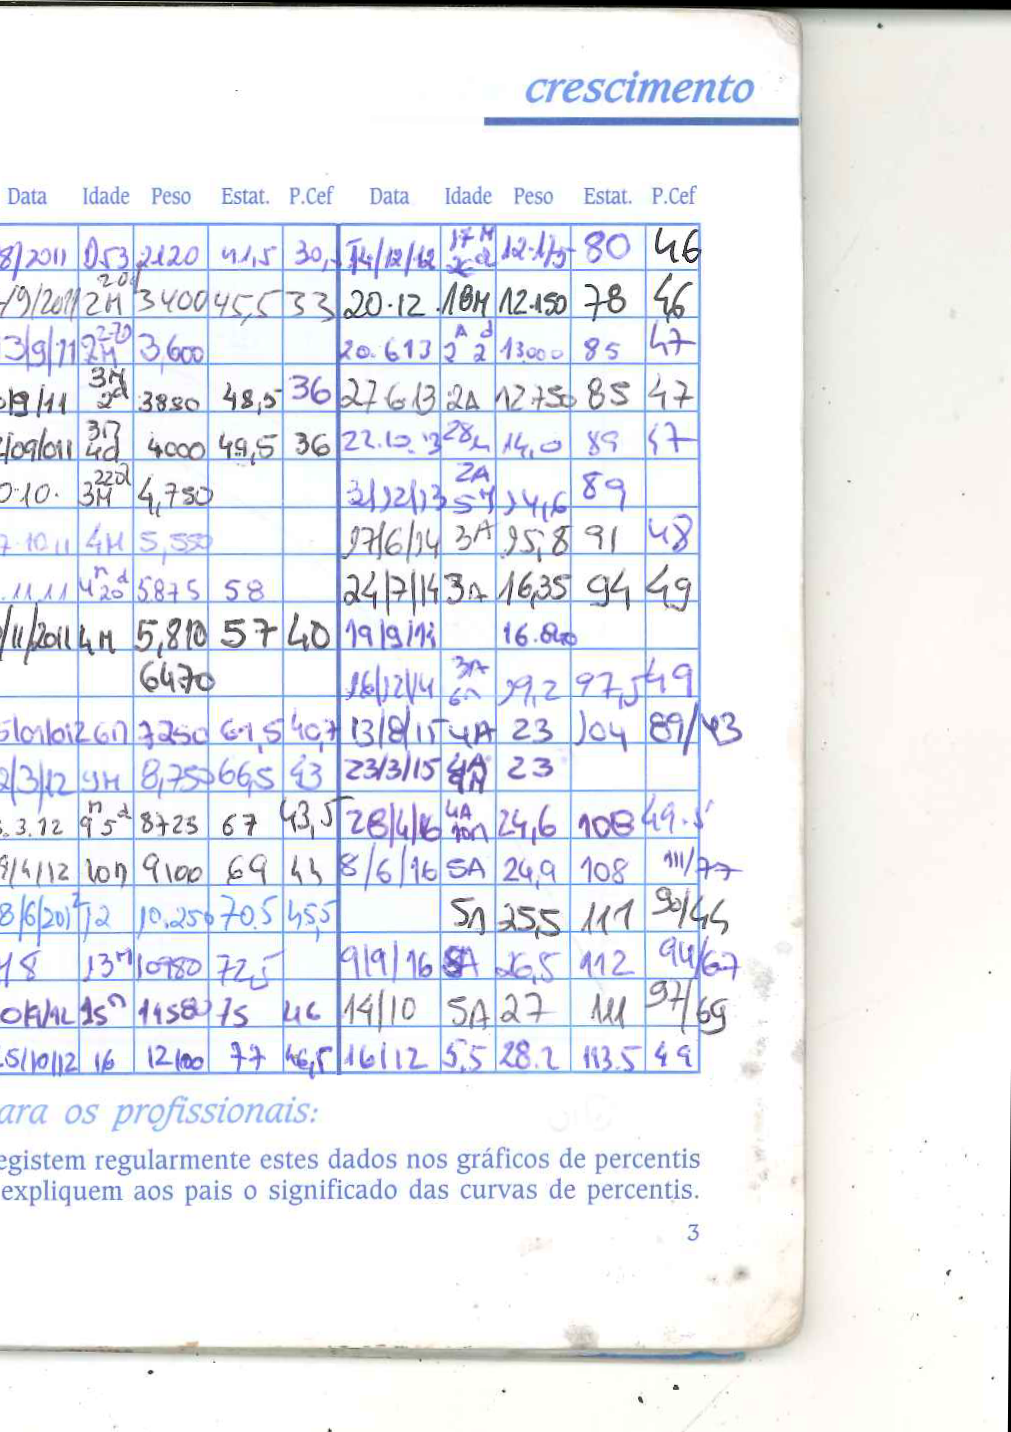 crescimento
Data Idade Peso Estat. P.Cef Data Idade Peso Estat. P.Cef
8/2011 D53 2120 41,5 30, 14/12/12 17M 80 46
/9/2011 2M 20d 3400 45,5 33 20.12. 18M 12.150 78 46
3/9/11 2M 3,600 20.613 2A 2d 13000 85 47
9/11 3M 2d 3830 48,5 36 27 6/13 2A 12750 85 47
/09/011 3M 4d 4000 49,5 36 22.10.13 28m 14,0 89 47
0.10. 3M 22d 4,750 31/12/13 2A 5M 14,6 89
7.10.11 4M 5,550 17/6/14 3A 15,8 91 48
.11.11 4m 20d 5875 58 24/7/14 3A 16,35 94 49
/11/2011 4M 5,810 57 40 19/9/14
6470 16/12/14 3A 6m 19,2 97,5 49
5/01/012 6M 7250 61,5 40,7 13/8/15 4A 23 104 89/43
2/3/12 9M 8,750 66,5 43 23/3/15 23
.3.12 9m 5d 8725 67 43,5 28/4/16 4A 10m 24,6 108 49.5
/4/12 10M 9100 69 44 8/6/16 5A 24,9 108 111/77
8/6/2012 12 10.250 70.5 45,5 5A 25,5 111 90/44
/8 13M 10980 72,5 9/9/16 5A 26,5 112 94/67
15M 75 46 14/10 5A 27 111 97/69
5/10/12 16 12100 77 46,5 16/12 5,5 28.2 113.5 49
ara os profissionais:
egistem regularmente estes dados nos gráficos de percentis
expliquem aos pais o significado das curvas de percentis.
3